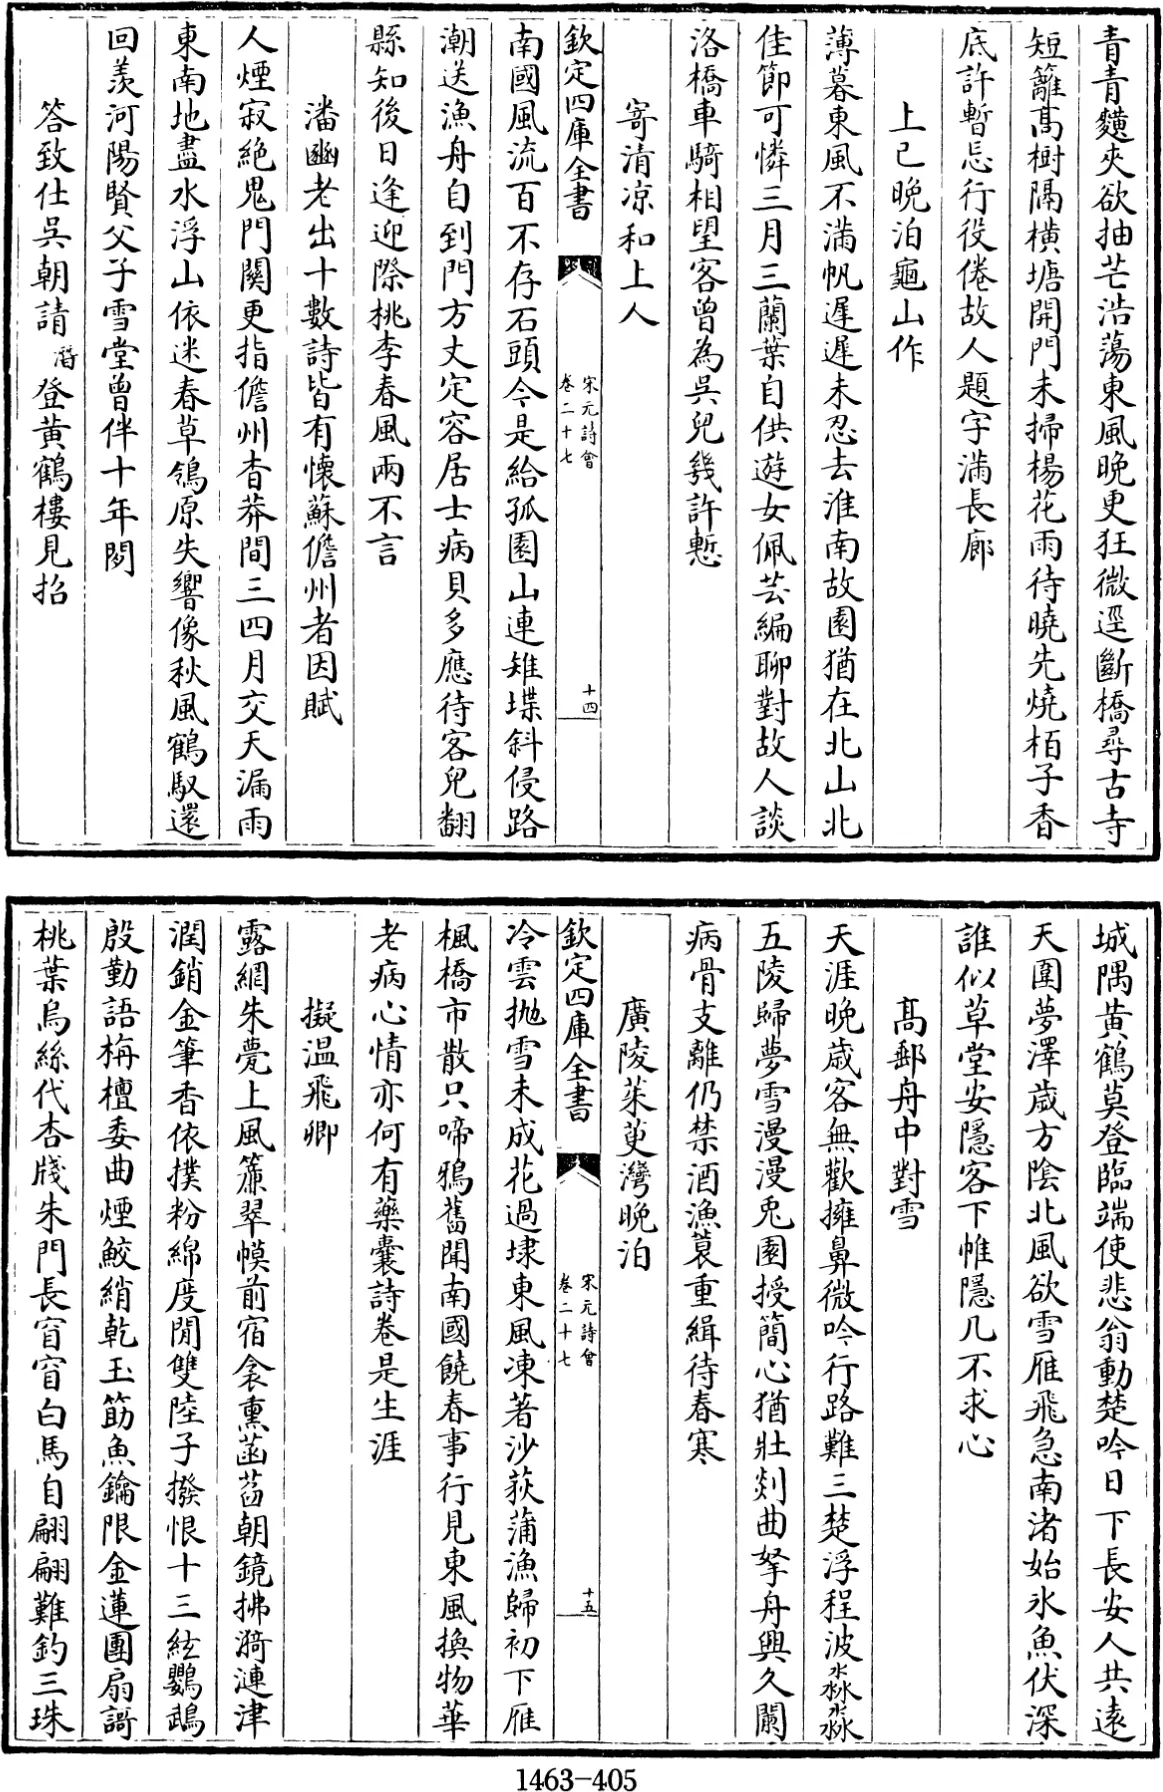 青青䵃夾欲抽芒浩蕩東風晚更狂微逕斷橋尋古寺
短籬髙樹隔横塘開門未掃楊花雨待曉先燒栢子香
底許暫忘行役倦故人題字滿長廊
上巳晚泊龜山作
薄暮東風不滿帆遲遲未忍去淮南故園猶在北山北
佳節可憐三月三蘭葉自供遊女佩芸編聊對故人談
洛橋車騎相望客曾為吳兒幾許慙
寄清凉和上人
欽定四庫全書
宋元詩會
卷二十七
十四
南國風流百不存石頭今是給孤園山連雉堞斜侵路
潮送漁舟自到門方丈定容居士病貝多應待客兒翻
縣知後日逢迎際桃李春風兩不言
潘豳老出十數詩皆有懷蘇儋州者因賦
人煙寂絶鬼門關更指儋州杳莽間三四月交天漏雨
東南地盡水浮山依迷春草鴒原失響像秋風鶴馭還
回羨河陽賢父子雪堂曾伴十年閒
答致仕吳朝請潛登黄鶴樓見招
城隅黄鶴莫登臨端使悲翁動楚吟日下長安人共逺
天圍夢澤歲方陰北風欲雪雁飛急南渚始氷魚伏深
誰似草堂安隱客下帷隱几不求心
髙郵舟中對雪
天涯晚歳客無歡擁鼻微吟行路難三楚浮程波淼淼
五陵歸夢雪漫漫兎園授簡心猶壯剡曲拏舟興久闌
病骨支離仍禁酒漁蓑重緝待春寒
廣陵茱萸灣晚泊
欽定四庫全書
宋元詩會
卷二十七
十五
冷雲抛雪未成花過埭東風凍著沙荻蒲漁歸初下雁
楓橋市散只啼鴉舊聞南國饒春事行見東風換物華
老病心情亦何有藥囊詩卷是生涯
擬温飛卿
露網朱甍上風簾翠幙前宿衾熏菡萏朝鏡拂漪漣津
潤銷金筆香依撲粉綿度閒雙陸子撥恨十三絃鸚鵡
殷勤語栴檀委曲煙鮫綃乾玉筯魚鑰限金蓮團扇謌
桃葉烏絲代杏牋朱門長窅窅白馬自翩翩難釣三珠
1463-405